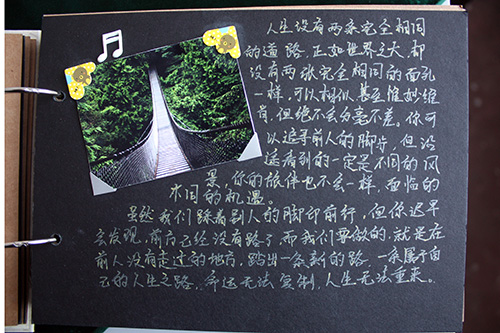 人生没有两条完全相同
的道路，正如世界之大，都
没有两张完全相同的面孔
一样，可以相似甚至惟妙维
肖，但绝不会分毫不差。你可
以追寻前人的脚步，但沿
途看到的一定是不同的风
景，你的旅伴也不会一样，面临的
不同的机遇。
虽然我们踩着别人的脚印前行，但你迟早
会发现，前方已经没有路了，而我们要做的，就是在
前人没有走过的地方，踏出一条新的路，一条属于自
己的人生之路，命运无法复制，人生无法重来。